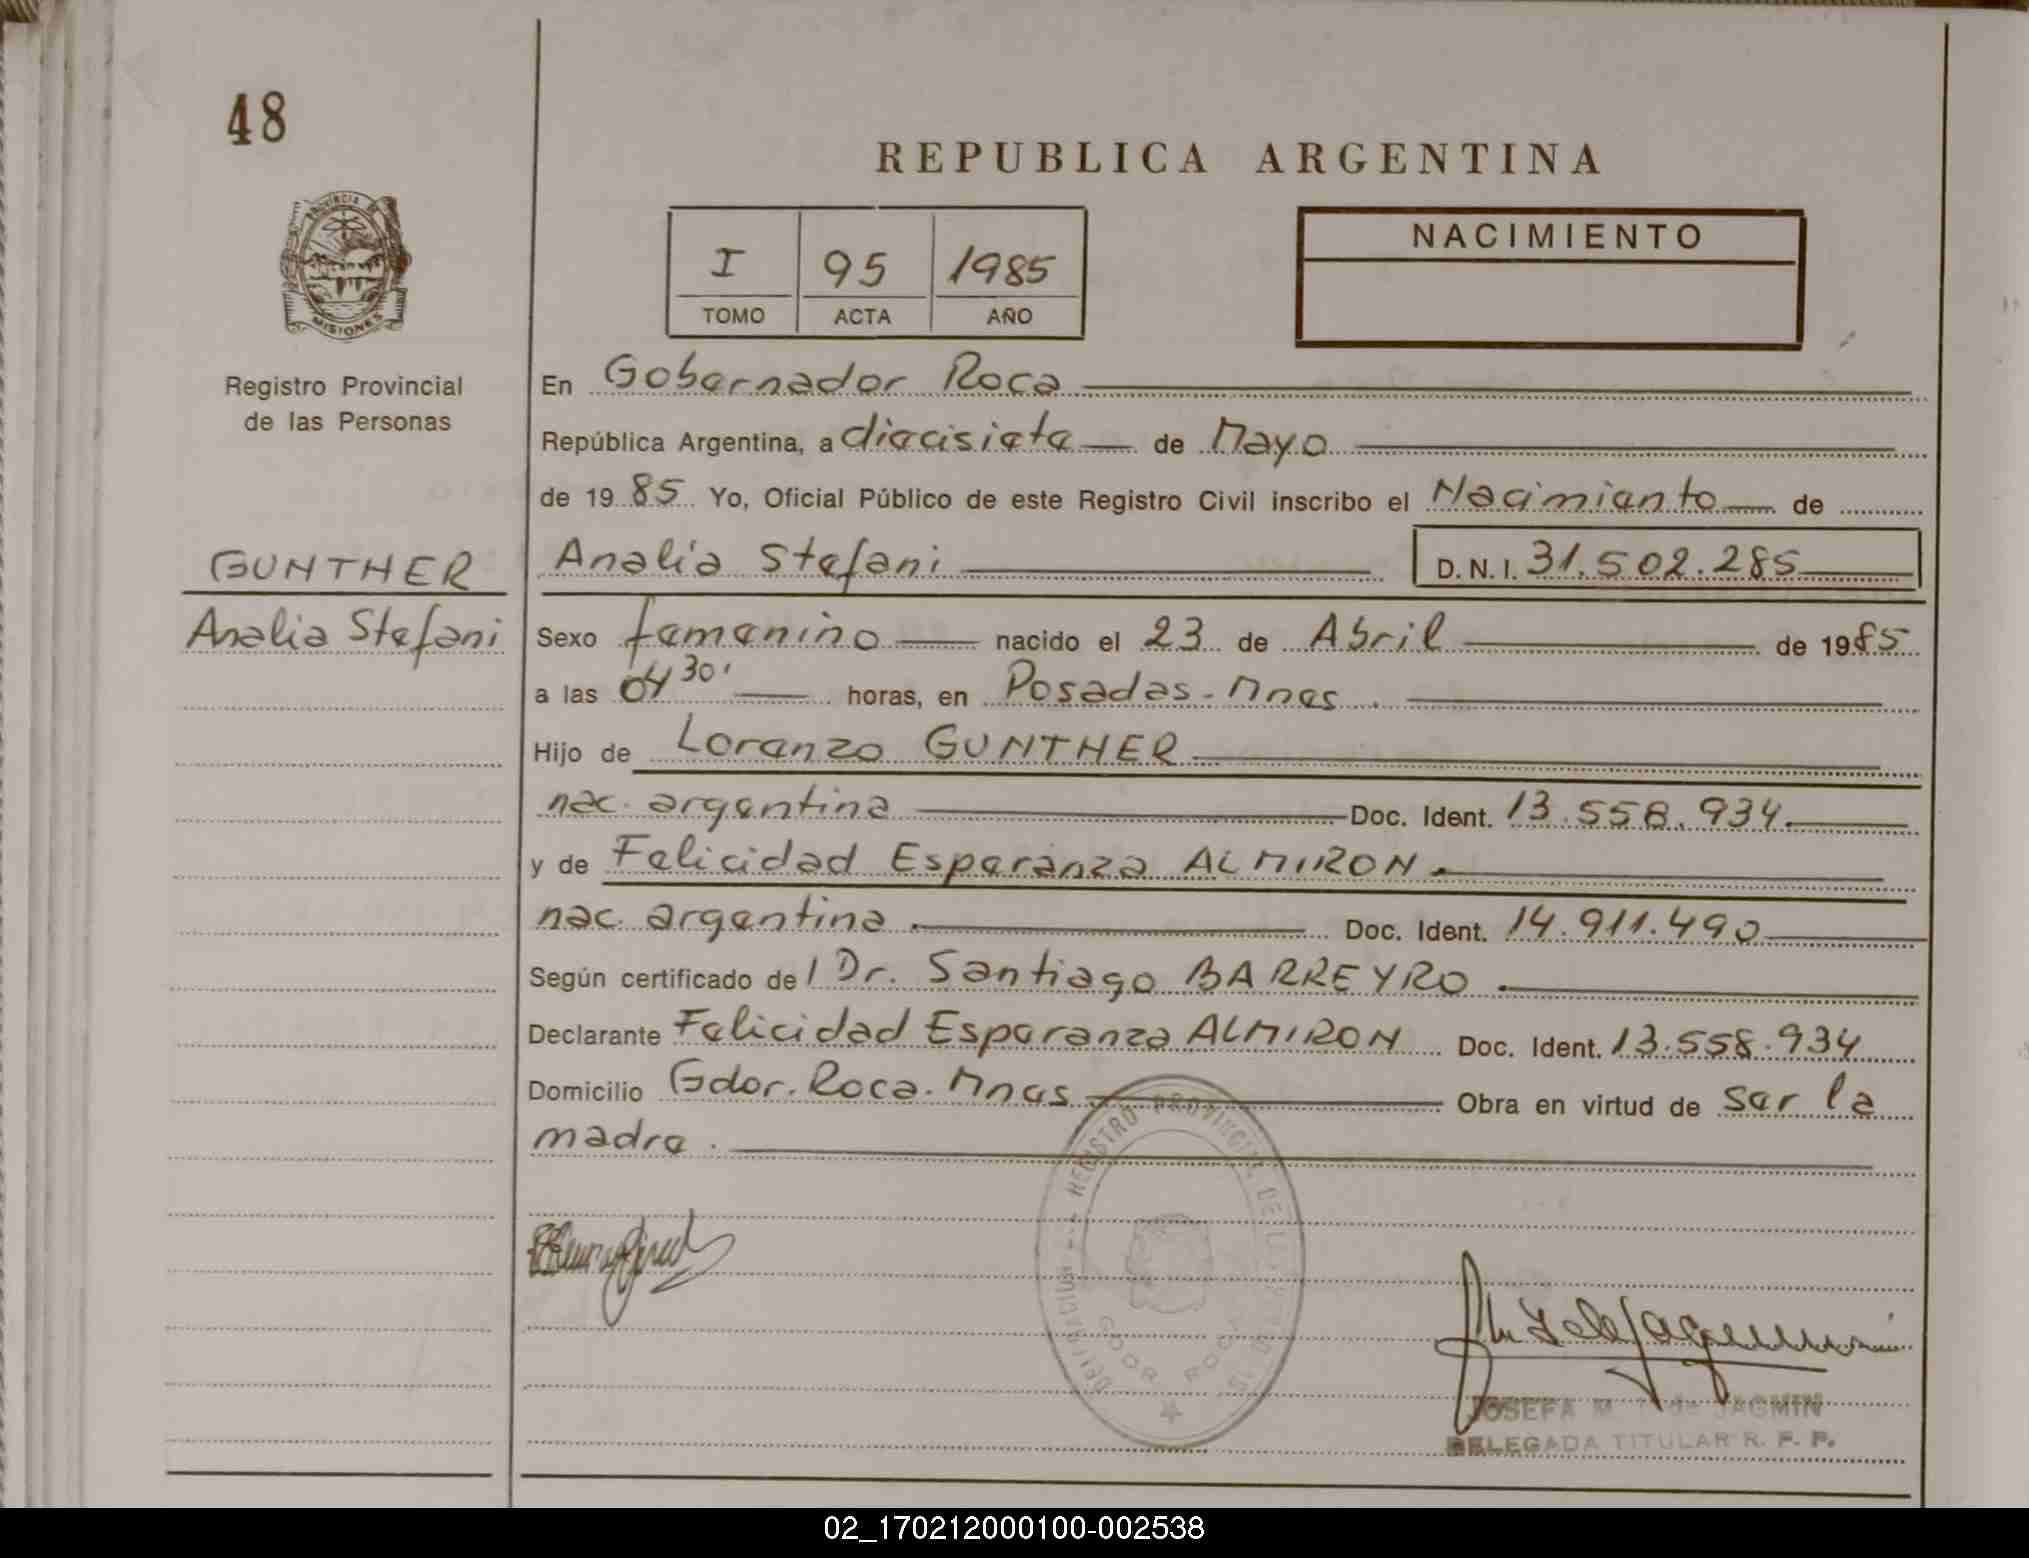 48
REPUBLICA ARGENTINA
PROVINCIA DE
MISIONES
Registro Provincial
de las Personas
I 95 1985
TOMO ACTA AÑO
NACIMIENTO
En Gobernador Roca
República Argentina, a diecisiete de Mayo
de 1985 Yo, Oficial Público de este Registro Civil inscribo el Nacimiento de
GUNTHER
Analia Stefani
Analía Stefani D.N.I. 31.502.285
Sexo femenino nacido el 23 de Abril de 1985
a las 04 30' horas, en Posadas-Mnes.
Hijo de Lorenzo GUNTHER
nac. argentina Doc. Ident. 13.558.934
y de Felicidad Esperanza ALMIRON.
nac. argentina. Doc. Ident. 14.911.490
Según certificado de l Dr. Santiago BARREYRO.
Declarante Felicidad Esperanza ALMIRON Doc. Ident. 13.558.934
Domicilio Gdor. Roca. Mnes Obra en virtud de ser la
madre.
REGISTRO PROVINCIAL DE LAS
DELEGACION
GDOR ROCA
JOSEFA M. de JAGMIN
DELEGADA TITULAR R. P. P.
02_170212000100-002538